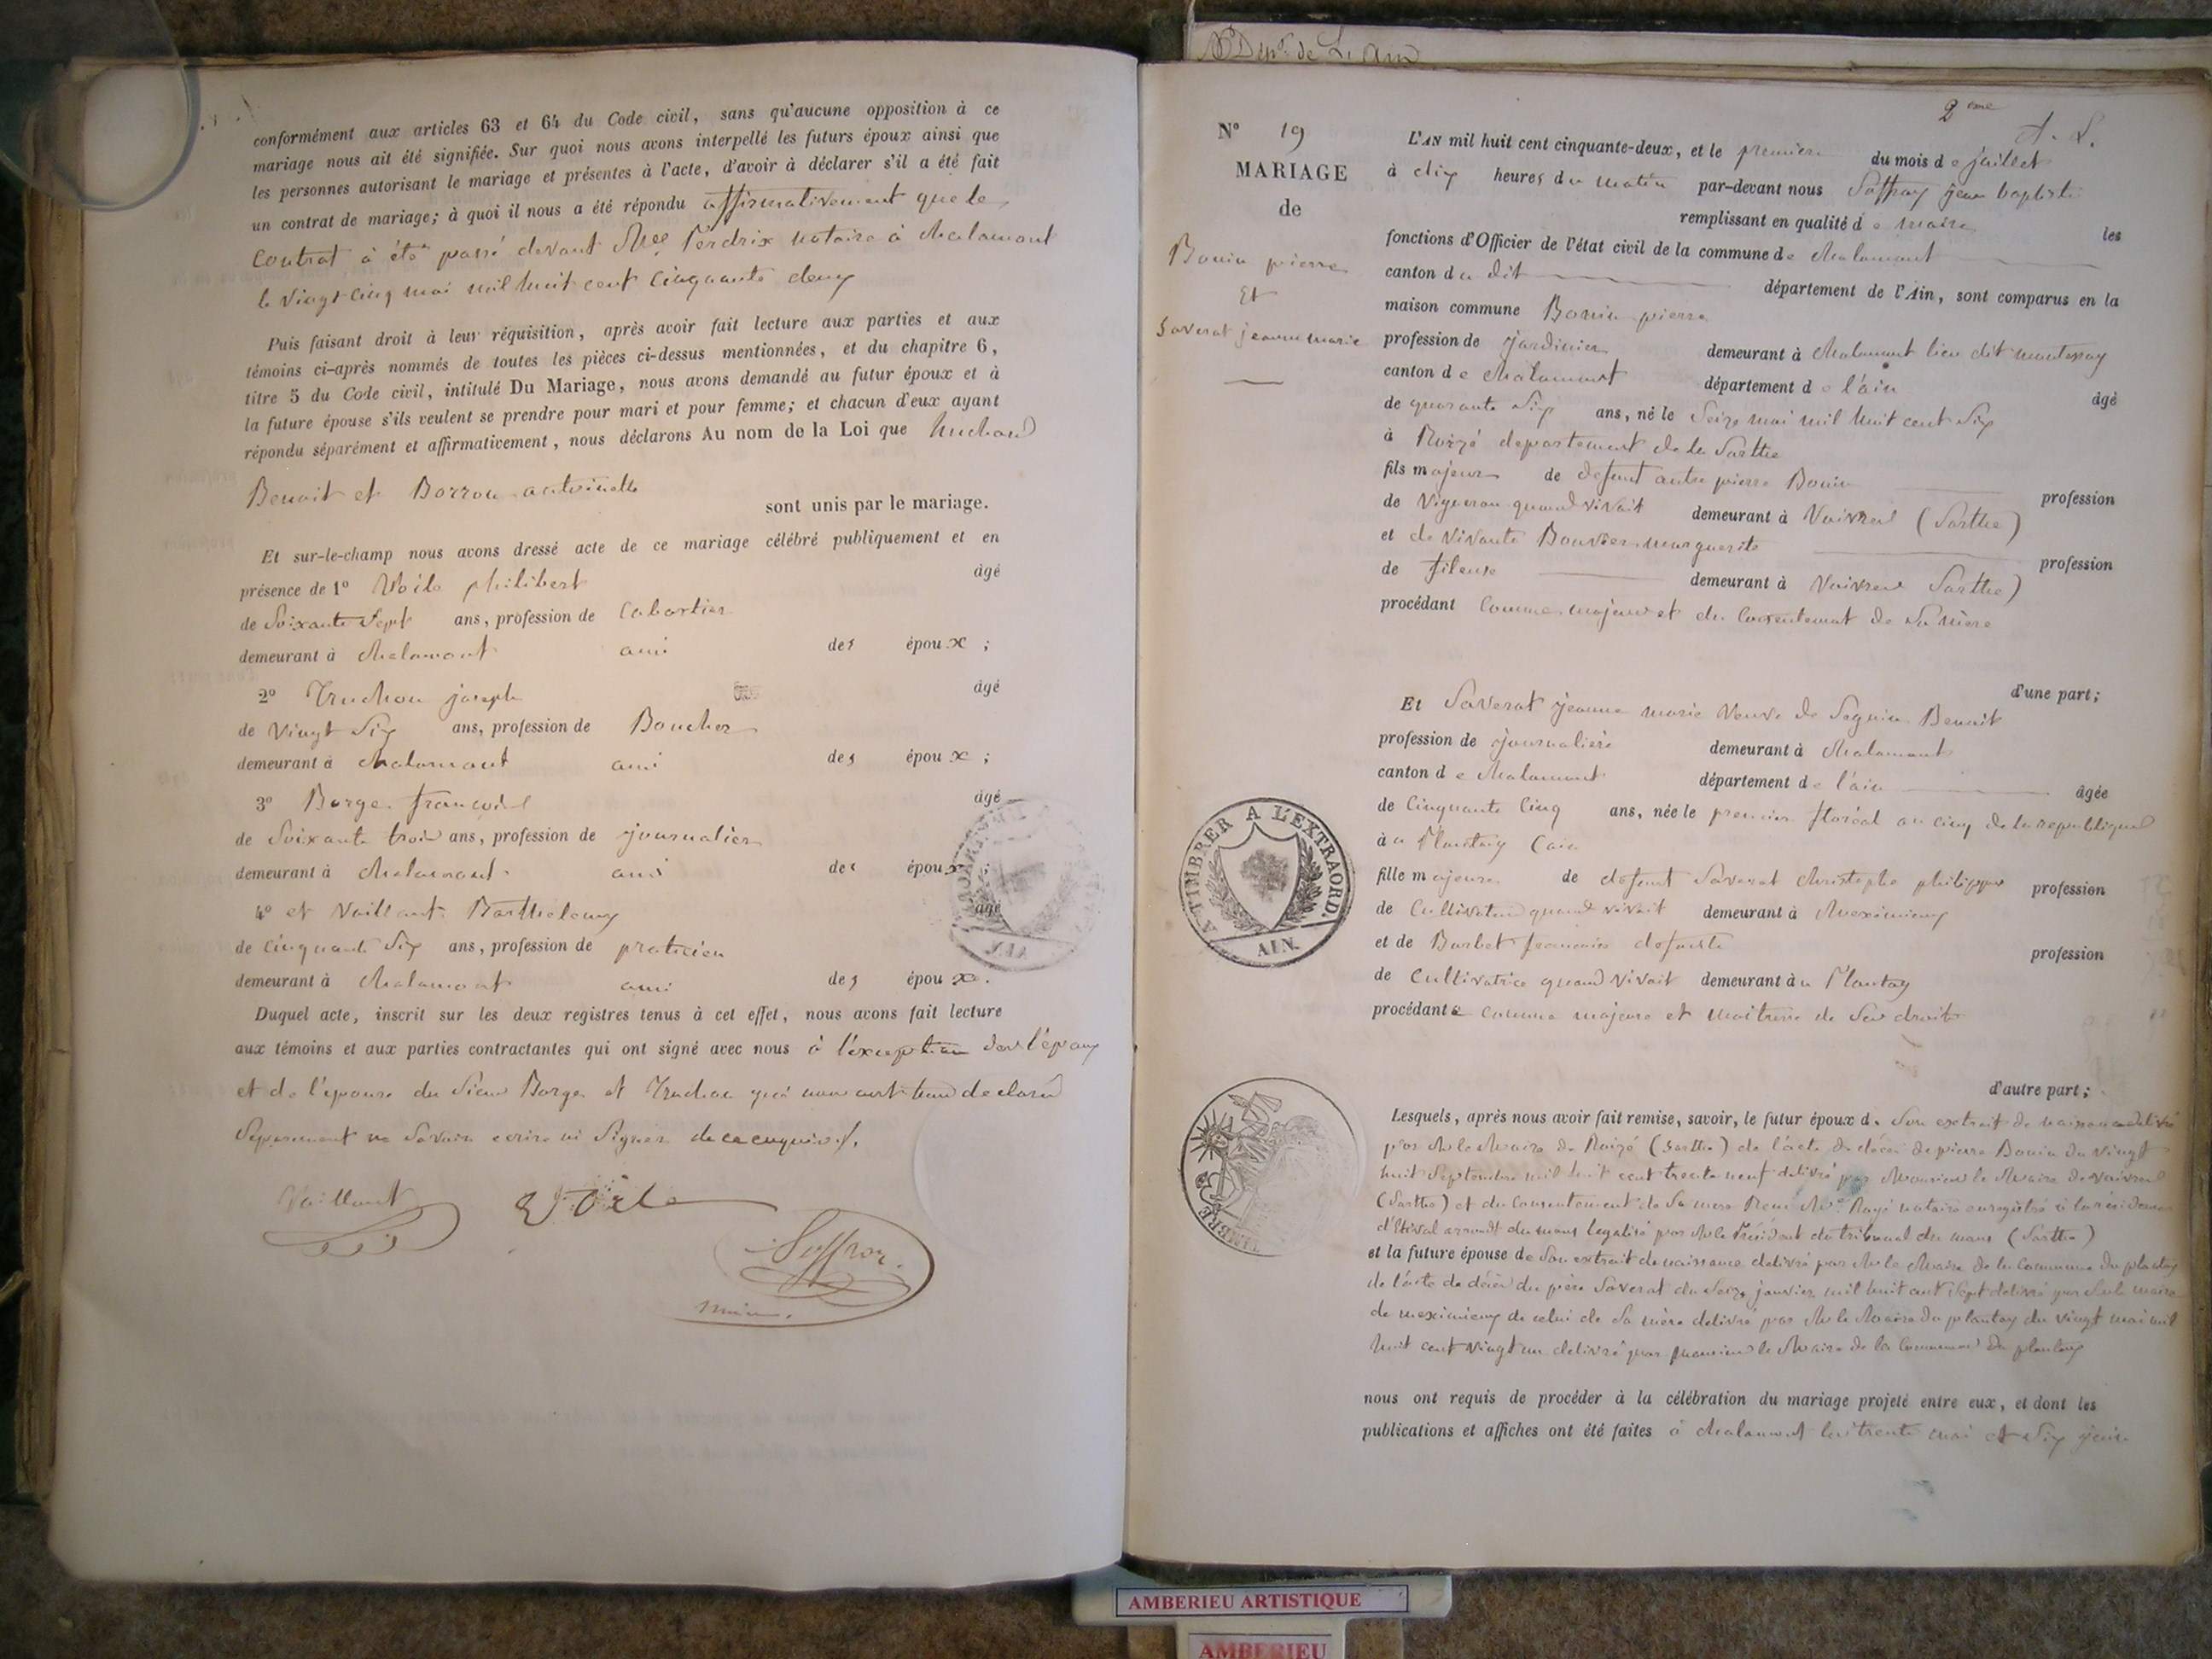 conformément aux articles 63 et 64 du Code civil, sans qu'aucune opposition à ce
mariage nous ait été signifiée. Sur quoi nous avons interpellé les futurs époux ainsi que
les personnes autorisant le mariage et présentes à l'acte, d'avoir à déclarer s'il a été fait
un contrat de mariage; à quoi il nous a été répondu affirmativement que le
Contrat à été passé devant Perdrix notaire à chalamont
le vingt cinq mai mil huit cent cinquante deux
Puis faisant droit à leur réquisition, après avoir fait lecture aux parties et aux
témoins ci-après nommés de toutes les pièces ci-dessus mentionnées, et du chapitre 6,
titre 5 du Code civil, intitulé Du Mariage, nous avons demandé au futur époux et à
la future épouse s'ils veulent se prendre pour mari et pour femme; et chacun d'eux ayant
répondu séparément et affirmativement, nous déclarons Au nom de la Loi que
Benoit et Borron antoinette
sont unis par le mariage.
Et sur-le-champ nous avons dressé acte de ce mariage célébré publiquement et en
présence de 1º philibert âgé
de Soixante Sept ans, profession de Cabartier
demeurant à chalamont ami des époux ;
2º Truchon joseph âgé
de vingt Six ans, profession de Boucher
demeurant à chalamont ami des époux ;
3º Borge françois âgé
de Soixante trois ans, profession de journalier
demeurant à chalamont ami des époux ;
4º et Vaillant Barthelemy âgé
de cinquante Six ans, profession de praticien
demeurant à chalamont ami des époux.
Duquel acte, inscrit sur les deux registres tenus à cet effet, nous avons fait lecture
aux témoins et aux parties contractantes qui ont signé avec nous à l'exception de l'époux
et de l'épouse du Sieur Borge et Truchon qui nous ont tous déclaré
Séparement ne Savoir ecrire ni Signer de ce enquis.
Vaillant
maire.
Dept de L'Ain
2eme
Nº 19
MARIAGE
de
Bouin pierre
Et
Saverat jeanne marie
L'AN mil huit cent cinquante-deux, et le premier du mois de juillet
à dix heures du matin par-devant nous jean baptiste
remplissant en qualité de maire les
fonctions d'Officier de l'état civil de la commune de chalamont
canton du dit département de l'Ain, sont comparus en la
maison commune Bouin pierre
profession de jardinier demeurant à chalamont lieu dit montessuy
canton de chalamont département de l'ain âgé
de quarante Six ans, né le Seize mai mil huit cent Six
à Noizé departement de la Sarthe
fils majeur de defunt autre pierre Bouin profession
de vigneron quand vivait demeurant à (Sarthe)
et de vivante Bouvier marguerite profession
de fileuse demeurant à Sarthe)
procédant Comme majeur et du Consentement de Sa mère
d'une part;
Et Saverat jeanne marie veuve de Seguin Benoit
profession de journalière demeurant à chalamont
canton de chalamont département de l'ain âgée
de Cinquante Cinq ans, née le premier floréal an cinq de la republique
à u Plantay (ain
fille majeure de defunt Saverat christophe philippe profession
de Cultivateur quand vivait demeurant à Meximieux
et de Barbet françoise defunte profession
de Cultivatrice quand vivait demeurant à u Plantay
procédante comme majeure et maitresse de Ses droits
d'autre part;
Lesquels, après nous avoir fait remise, savoir, le futur époux d. Son extrait de naissance delivré
par Mr le Maire de Noizé (Sarthe) de l'acte de décès de pierre Bouin du vingt
huit Septembre mil huit cent trente neuf delivré par Monsieur le Maire de
(Sarthe) et du Consentement de Sa mere notaire enregistré à la résidence
d'Etival arrondt du mans legalisé par Mr le Président du tribunal du mans (Sarthe)
et la future épouse de Son extrait de naissance delivré par Mr le Maire de la Commune du plantay
de l'acte de décès du père Saverat du Seize janvier mil huit cent Sept delivré par le maire
de meximieux de celui de Sa mère delivré par Mr le Maire du plantay du vingt mai mil
huit cent vingt un delivré par Monsieur le Maire de la Commune du plantay
nous ont requis de procéder à la célébration du mariage projeté entre eux, et dont les
publications et affiches ont été faites à chalamont les trente mai et Six juin
A TIMBRER A L'EXTRAORD.
AIN.
TIMBRE
AMBERIEU ARTISTIQUE
AMBERIEU